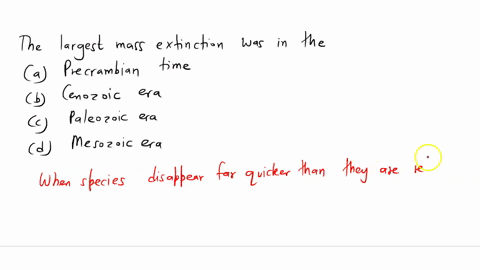 The largest mass extinction was in the
(a) Precrambian time
(b) Cenozoic era
(c) Paleozoic era
(d) Mesozoic era
When species disappear far quicker than they are re